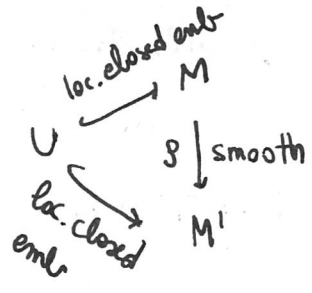 loc. closed emb
M
U
g smooth
M'
loc. closed
emb